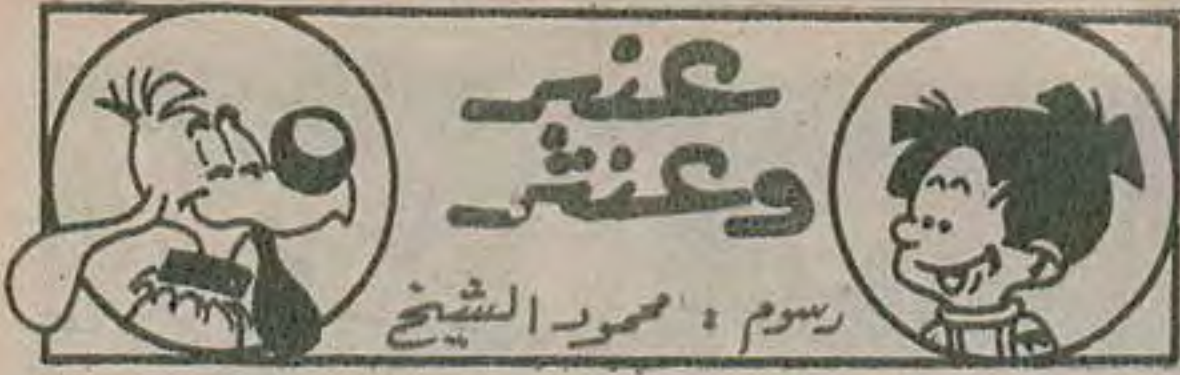 عنبر
وعنتر
رسوم : محمود الشيخ